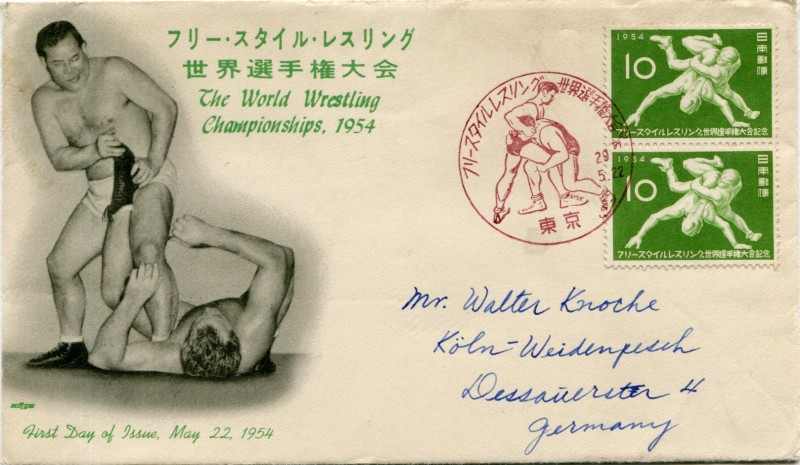 フリー・スタイル・レスリング
世界選手権大会
The World Wrestling
Championships, 1954
First Day of Issue, May 22, 1954
フリースタイルレスリング世界選手権大会
29
5.22
東京
1954
日本郵便
10
フリースタイルレスリング世界選手権大会記念
1954
日本郵便
10
フリースタイルレスリング世界選手権大会記念
Mr. Walter Knoche
Köln-Weidenpesch
Dessauerstr 4
Germany